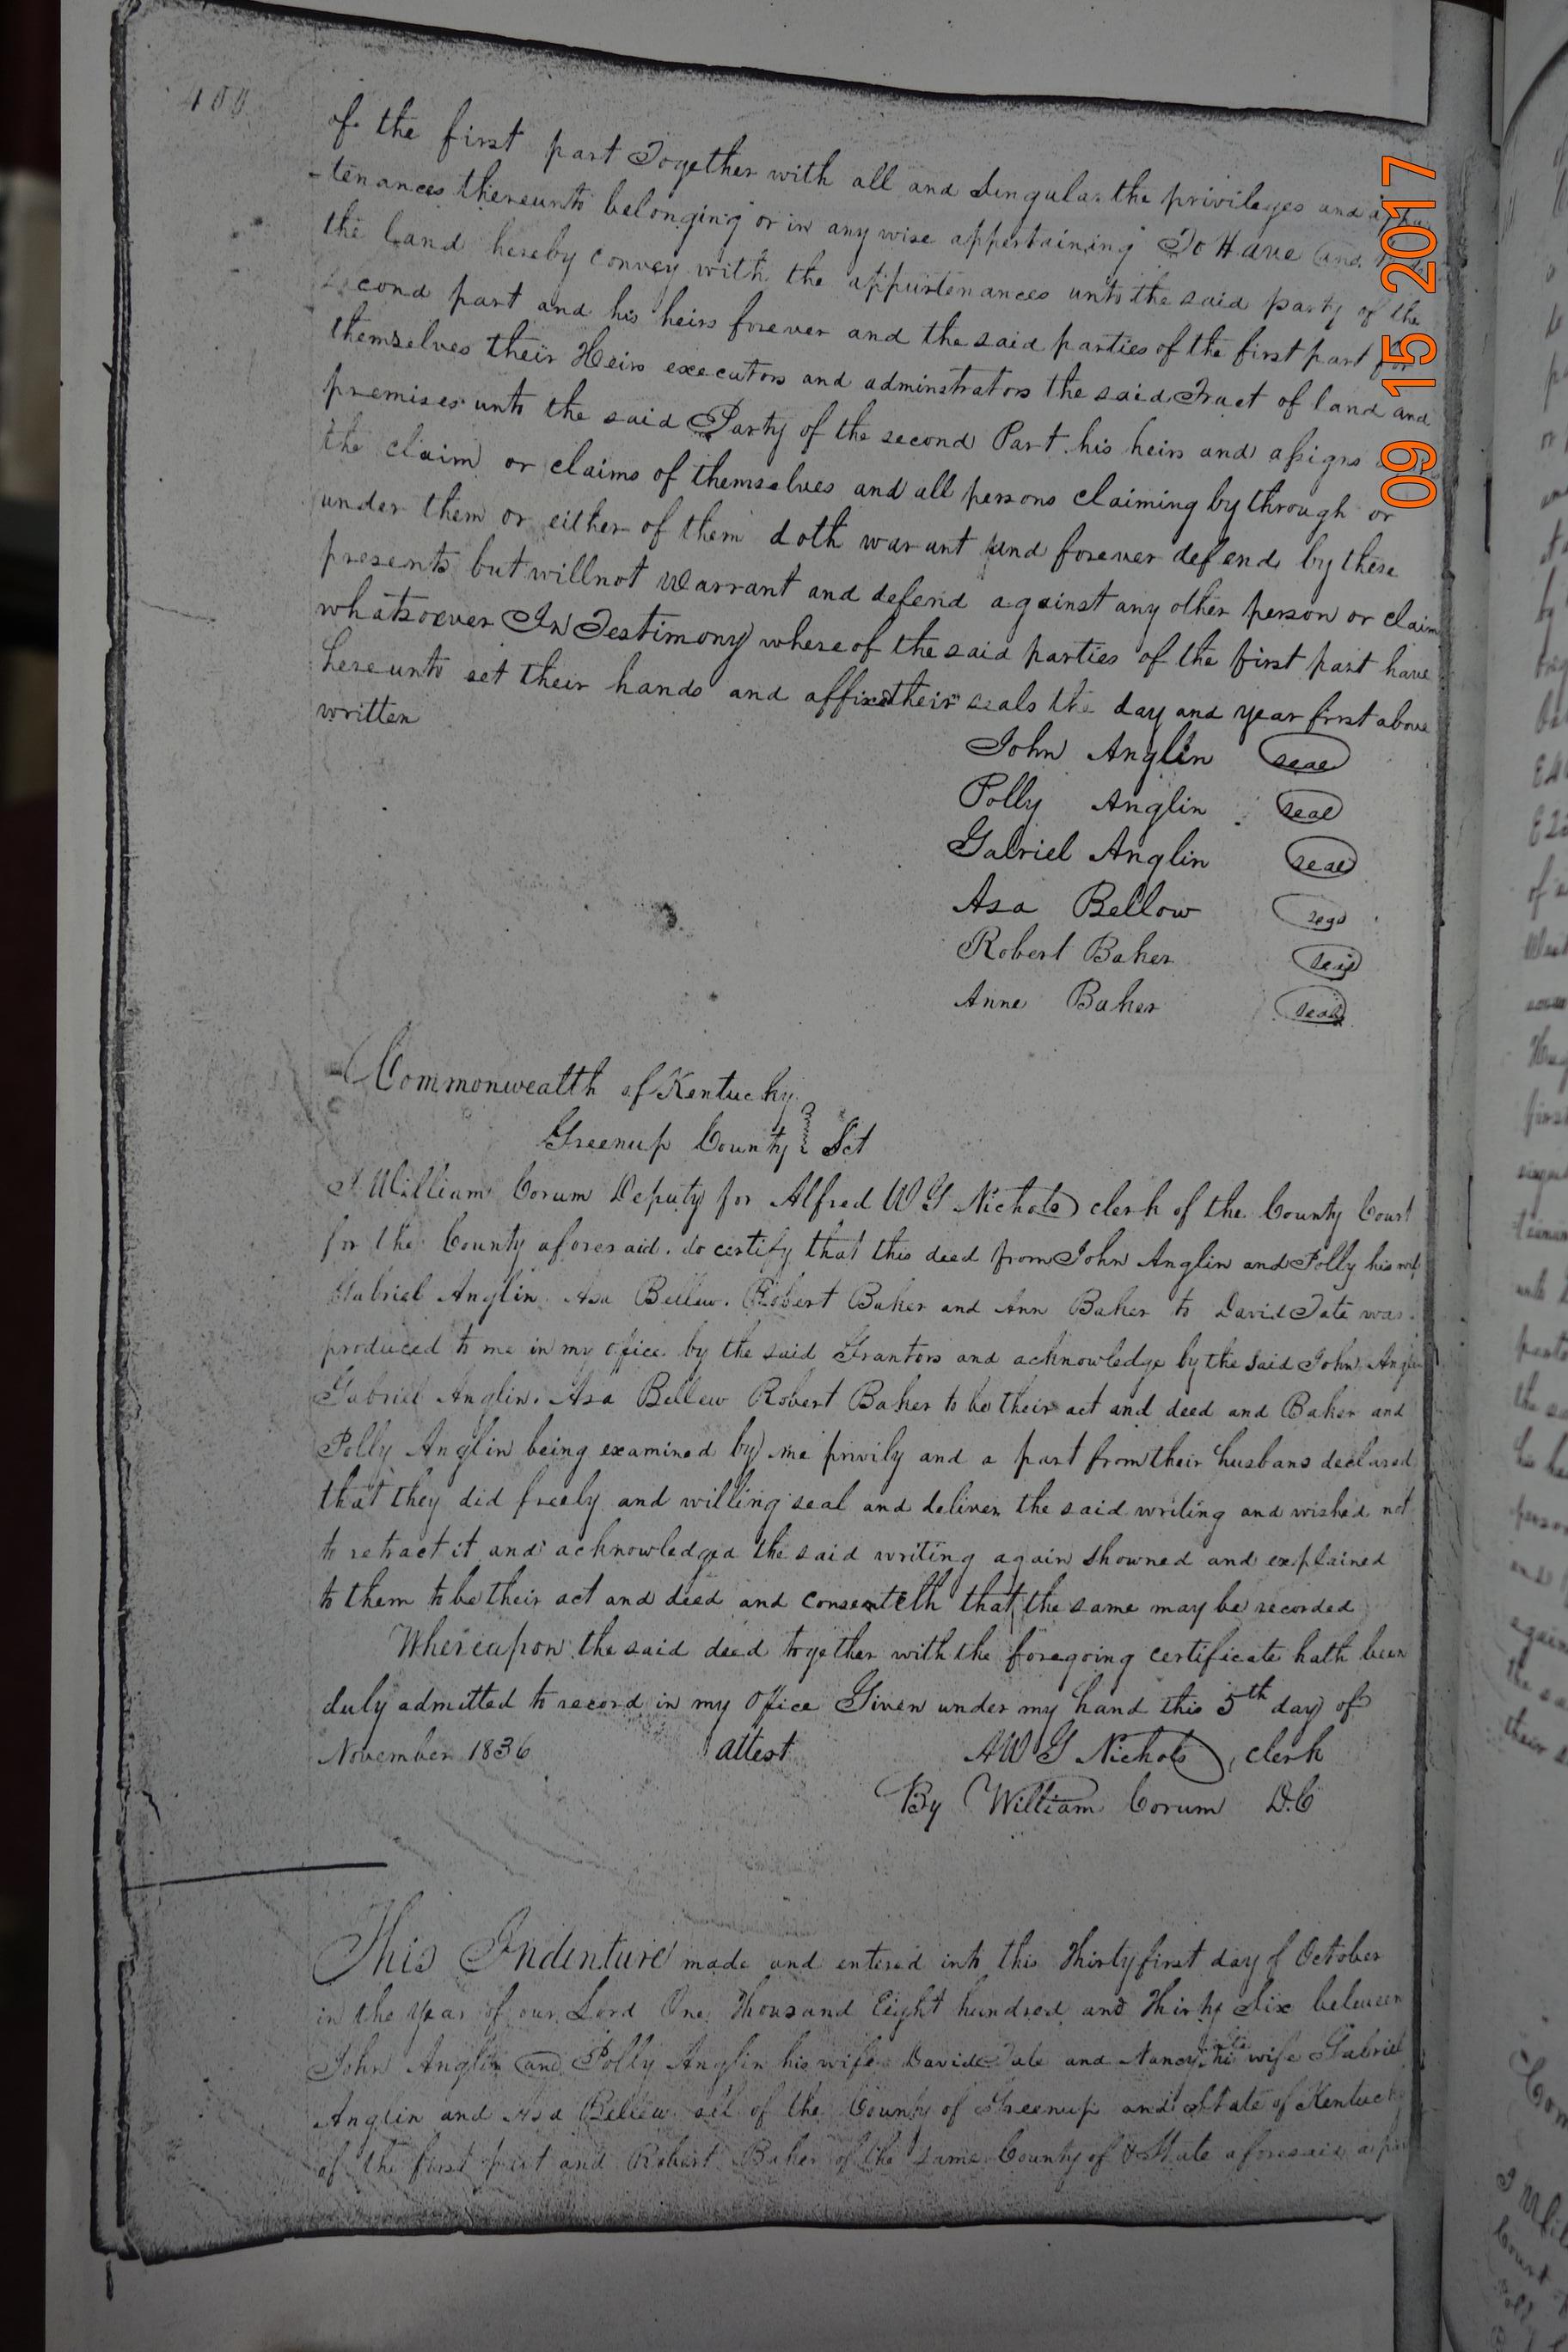 400
of the first part Together with all and Singular the privileges and appur
-tenances thereunto belonging or in any wise appertaining To Have and
the land hereby convey with the appurtenances unto the said party of the
second part and his heirs forever and the said parties of the first part for
themselves their Heirs executors and adminstrators the said Tract of land and
premises unto the said Party of the second Part his heirs and assigns
the claim or claims of themselves and all persons claiming by through or
under them or either of them doth warant and forever defend by these
presents but will not warrant and defend against any other person or claim
whatsoever In Testimony whereof the said parties of the first part have
hereunto set their hands and affixed their seals the day and year first above
written
John Anglin seal
Polly Anglin seal
Gabriel Anglin seal
Asa Bellow seal
Robert Baker seal
Anne Baker seal
Commonwealth of Kentucky
Greenup County Sct
I William Corum Deputy for Alfred W G Nichols clerk of the County Court
for the County aforesaid do certify that this deed from John Anglin and Polly his wife
Gabriel Anglin Asa Bellew. Robert Baker and Ann Baker to David Tate was
produced to me in my office by the said Grantors and acknowledge by the said John Anglin
Gabriel Anglin. Asa Bellew Robert Baker to be their act and deed and Baker and
Polly Anglin being examined by me privily and a part from their husbans declared
that they did freely and willing seal and deliver the said writing and wished not
to retract it and acknowledged the said writing again showned and explained
to them to be their act and deed and consenteth that the same may be recorded
Whereupon the said deed together with the foregoing certificate hath been
duly admitted to record in my office Given under my hand this 5th day of
November 1836 attest A W G Nichols, clerk
By William Corum D.C
This Indenture made and entered into this Thirty first day of October
in the year of our Lord One Thousand Eight hundred and Thirty Six between
John Anglin and Polly Anglin his wife David Tate and Nancy his wife Gabriel
Anglin and Asa Bellew all of the County of Greenup and State of Kentucky
of the first part and Robert Baker of the same County of & State aforesaid
09 15 2017